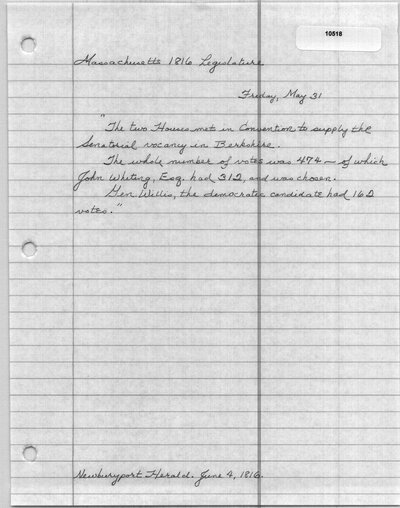 10518
Massachusetts 1816 Legislature
Friday, May 31
"The two Houses met in Convention to supply the
Senatorial vacancy in Berkshire.
The whole number of votes was 474 — of which
John Whiting, Esq. had 312, and was chosen.
Gen Willis, the democratic candidate had 162
votes."
Newburyport Herald. June 4, 1816.